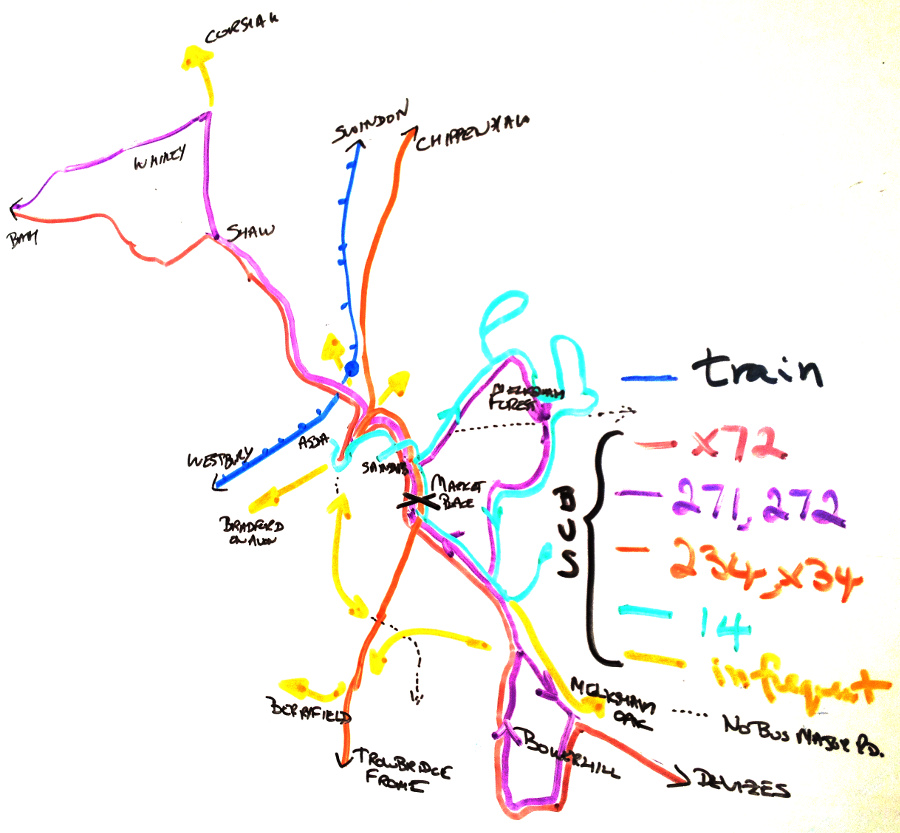 CORSHAM
SWINDON
CHIPPENHAM
WHITLEY
BATH
SHAW
MELKSHAM
FOREST
train
ASDA
WESTBURY
X72
MARKET
PLACE
271, 272
BRADFORD
ON AVON
BUS
234, X34
14
infrequent
MELKSHAM
OAK
BERRYFIELD
NO BUS MAJOR RD.
BOWERHILL
TROWBRIDGE
FROME
DEVIZES